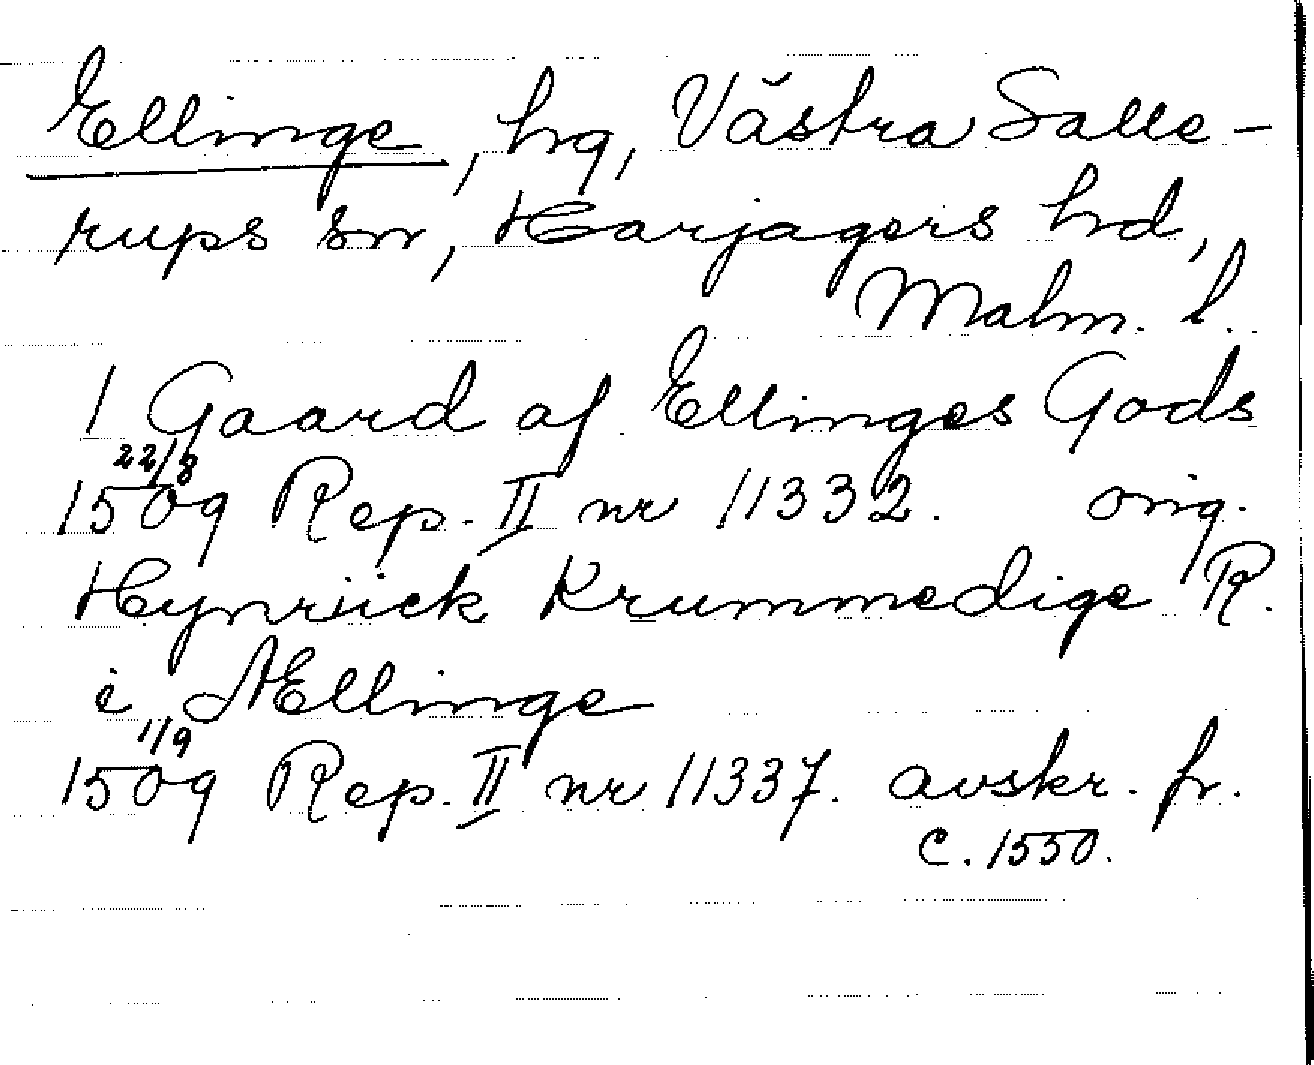 Ellinge, hg, Västra Salle-
rups sn, Harjagers hd,
Malm. l.
1 Gaard af Ellinges Gods
22/8
1509 Rep. II nr 11332. orig.
Hynriick Krummedige R.
i Ællinge
1/9
1509 Rep. II nr 11337. avskr. fr.
c. 1550.